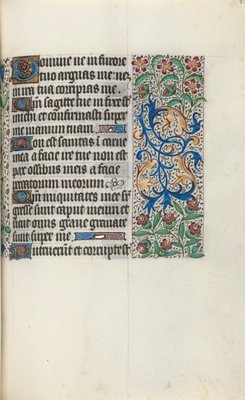 Domine ne in furore
tuo arguas me nez
in ira tua corripias me.
Qm sagitte tue infixe st
michi et confirmasti supz
me manum tuam.
Non est sanitas i carne
mea a facie ire tue non est
pax ossibus meis a facie
peccatorum meorum.
Qm iniquitates mee su
gresse sunt caput meum et
sicut onus graue grauate
sunt super me.
Putruerut et corrupte st